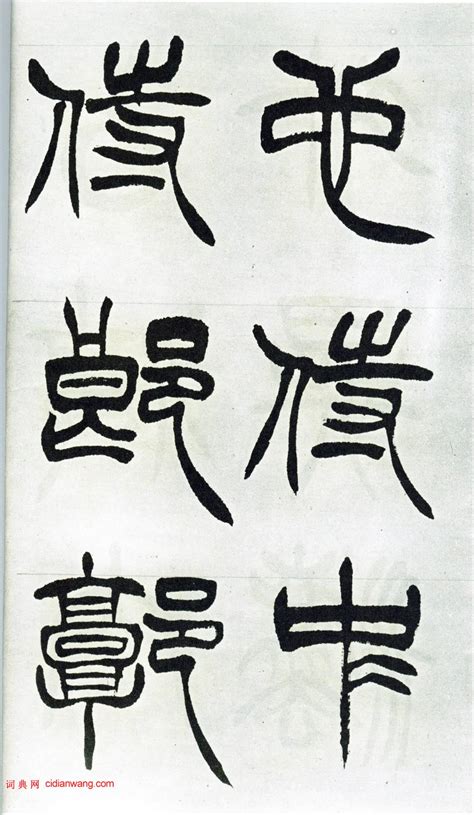 也侍中
侍郎郭
词典网 cidianwang.com